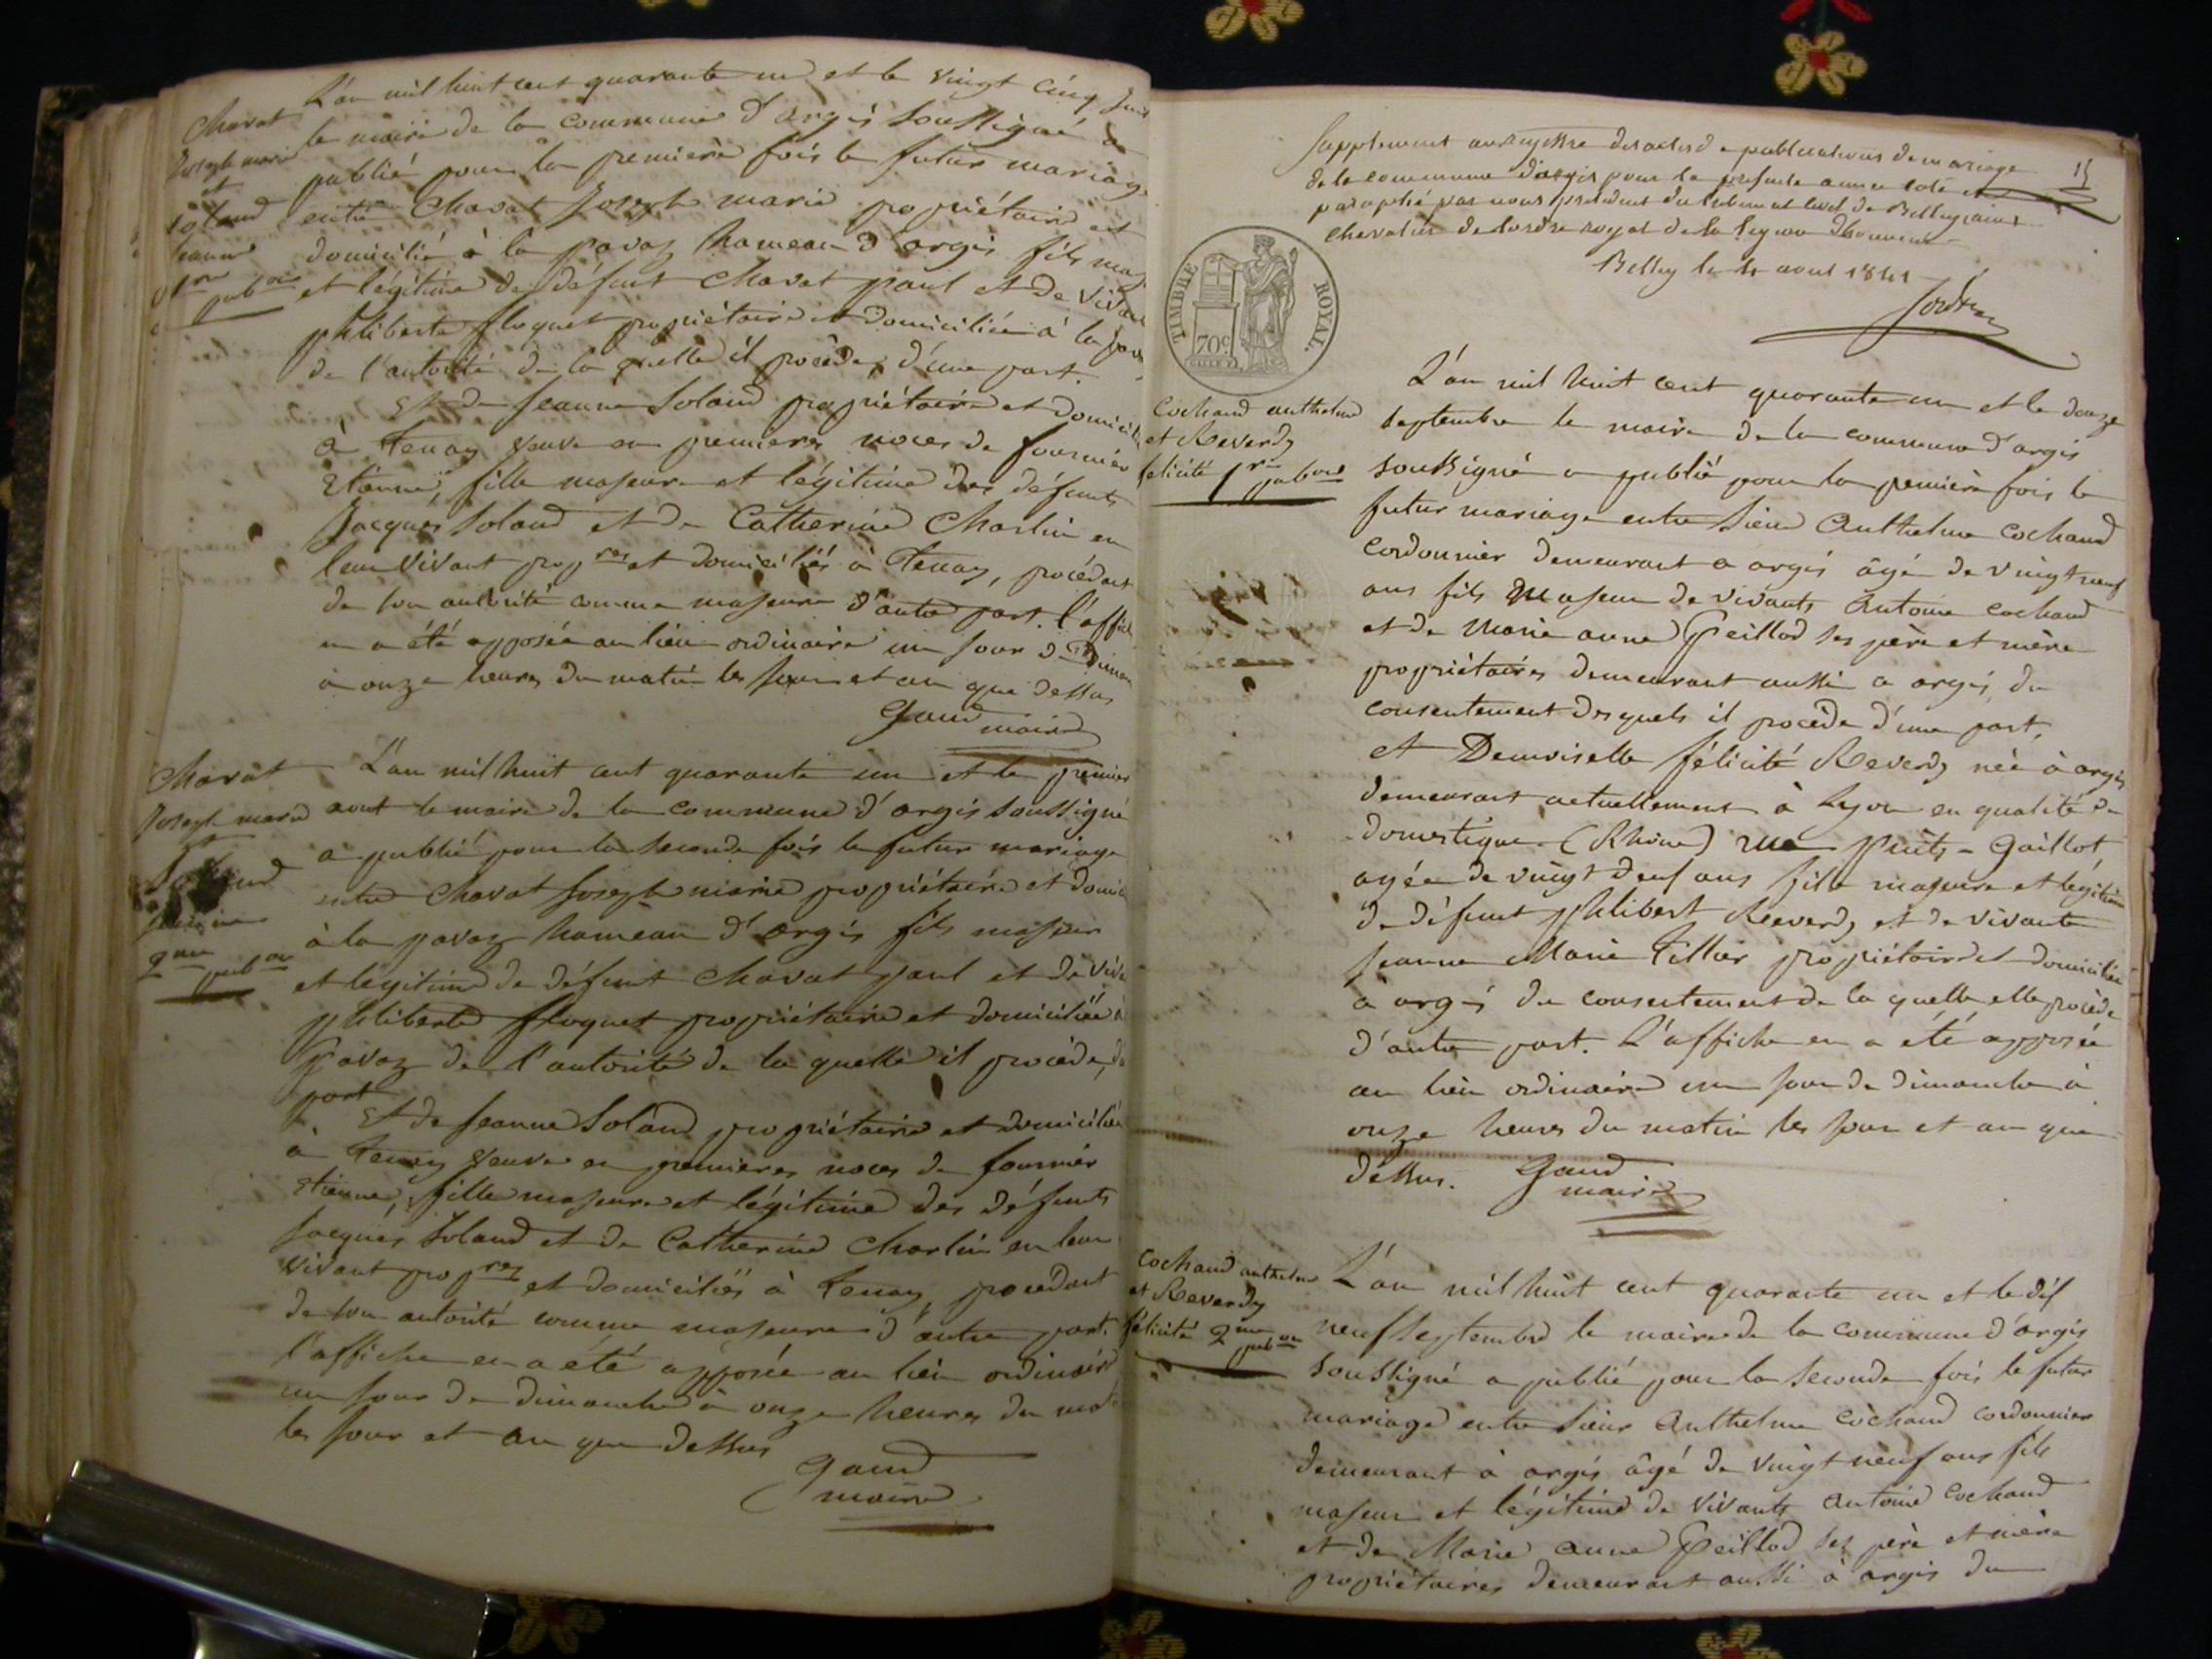 Chavat
Joseph marie
et
Soland
jeanne
1re
pubon
L'an mil huit cent quarante un et le vingt cinq
le maire de la commune d'argis soussigné a
publié pour la première fois le futur mariage
entre Chavat Joseph marie propriétaire et
domicilié à la pavaz hameau d'argis fils
et légitime de défunt Chavat paul et de
philiberte floquet propriétaire et domiciliée à la
de l'autorité de la quelle il procède, d'une part.
Et de Jeanne Soland propriétaire et
à Tenay veuve en premieres noces de fournier
Etienne, fille majeure et légitime des défunts
Jacques Soland et de Catherine Charlin en
leur vivant propres et domiciliés à Tenay, procédant
de son autorité comme majeure d'autre part. l'
en a été apposée au lieu ordinaire un jour de
à onze heures du matin les jour et an que dessus
Gaud
maire
Chavat
Joseph marie
et
2me
pubon
L'an mil huit cent quarante un et le premier
aout le maire de la commune d'argis soussigné
a publié pour la seconde fois le futur mariage
entre Chavat Joseph marie propriétaire et
à la pavaz hameau d'argis fils majeur
et légitime de défunt Chavat paul et de
philiberte floquet propriétaire et domiciliée
pavaz de l'autorité de la quelle il procède,
part
Et de Jeanne Soland propriétaire et domiciliée
à Tenay veuve en premieres noces de fournier
etienne, fille majeure et légitime des défunts
Jacques Soland et de Catherine Charlin en leur
vivant propres et domiciliés à Tenay procédant
de son autorité comme majeure d'autre part.
l'affiche en a été apposée au lieu ordinaire
un jour de dimanche à onze heures du
les jour et an que dessus
Gaud
maire
Supplement au registre des actes de publications de mariage
de la commune d'argis pour la presente annee coté et
paraphé par nous president du tribunal civil de Belley
chevalier de lordre royal de la legion dhonneur
Belley le aout 1841
TIMBRE ROYAL.
70c
Cochand anthelme
et Reverdy
félicité 1re
pubon
L'an mil huit cent quarante un et le douze
septembre le maire de la commune d'argis
soussigné a publié pour la première fois le
futur mariage entre Sieur Anthelme Cochand
cordonnier demeurant a argis âgé de vingt neuf
ans fils Majeur de vivants Antoine Cochand
et de Marie anne Peillod ses père et mère
propriétaires demeurant aussi a argis, du
consentement desquels il procède d'une part,
et Demoiselle félicité Reverdy née à argis
demeurant actuellement à Lyon en qualité de
domestique (Rhône) rue Puits-Gaillot
agée de vingt deux ans fille majeure et légitime
de défunt Philibert Reverdy et de vivante
jeanne Marie Tillier propriétaire et domiciliée
à argis du consentement de la quelle elle procède
d'autre part. L'affiche en a été apposée
au lieu ordinaire un jour de dimanche à
onze heures du matin les jour et an que
dessus. Gaud
maire
Cochand anthelme
et Reverdy
félicité 2me
pubon
L'an mil huit cent quarante un et le dix
neuf septembre le maire de la commune d'argis
soussigné a publié pour la seconde fois le futur
mariage entre Sieur Anthelme Cochand cordonnier
demeurant à argis âgé de vingt neuf ans fils
majeur et légitime de vivants Antoine Cochand
et de Marie anne Peillod ses père et mère
propriétaires demeurant aussi à argis du